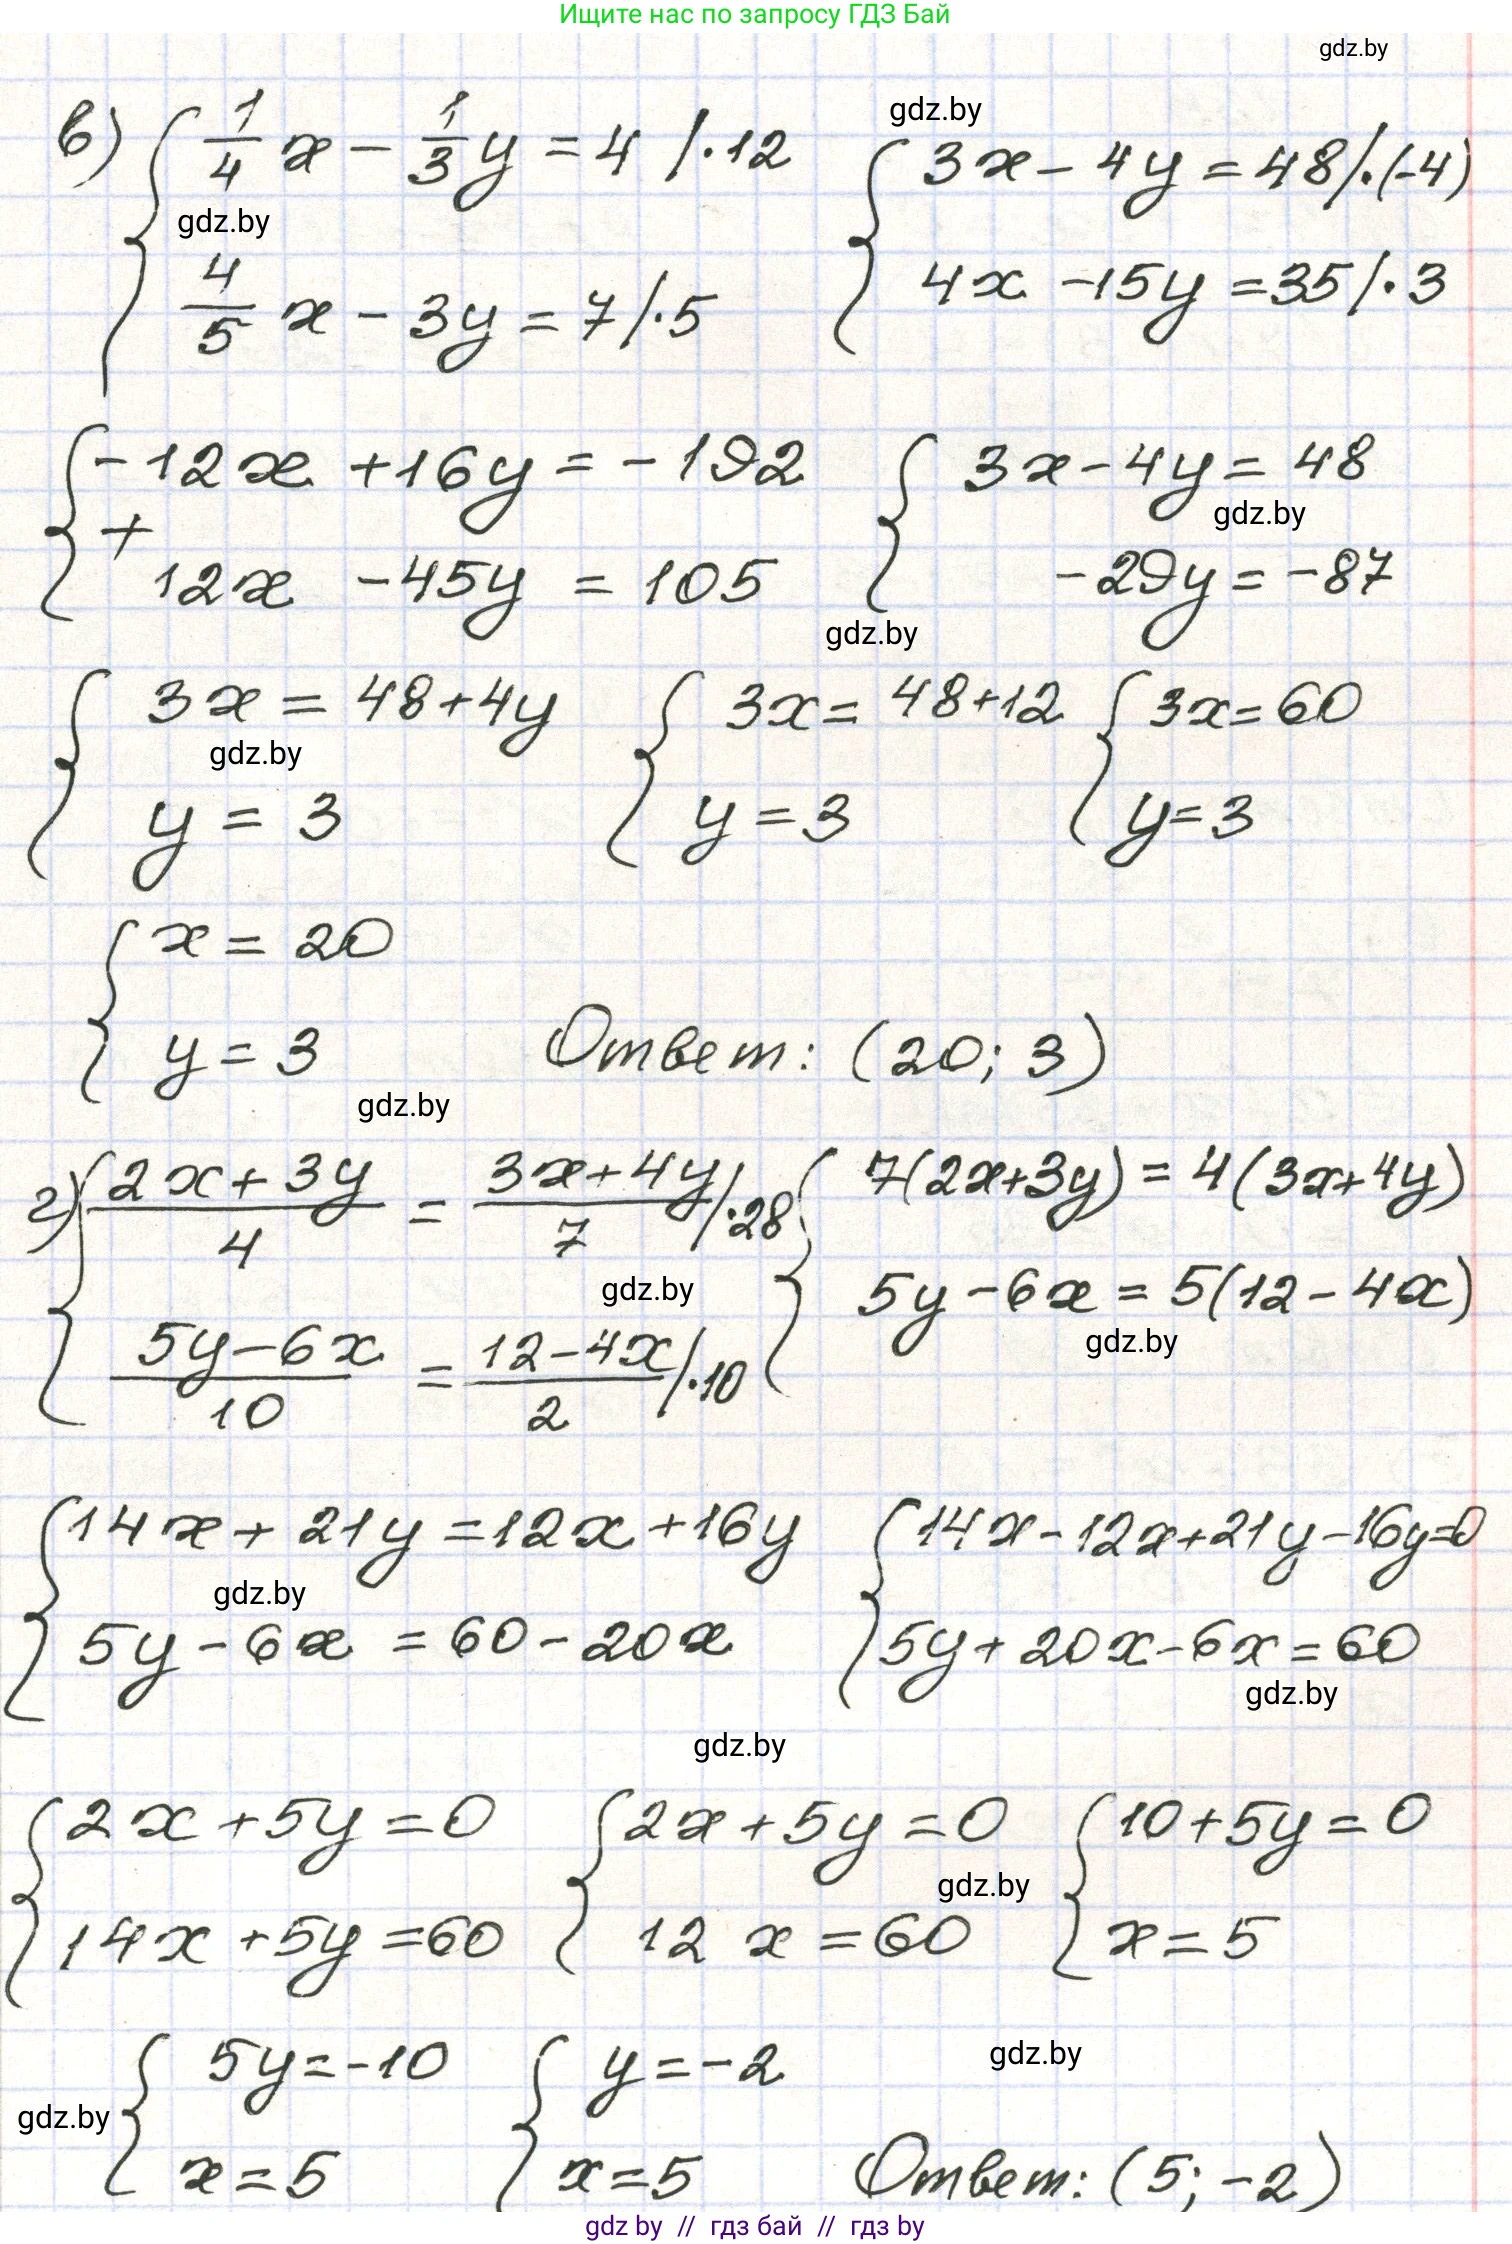 Ищите нас по запросу ГДЗ Бай
gdz.by
в) { 1/4 x - 1/3 y = 4 /·12
gdz.by
4/5 x - 3y = 7 /·5
gdz.by
{ 3x - 4y = 48 /·(-4)
4x - 15y = 35 /·3
{ -12x + 16y = -192
+
12x - 45y = 105
{ 3x - 4y = 48
gdz.by
-29y = -87
gdz.by
{ 3x = 48 + 4y
gdz.by
y = 3
{ 3x = 48 + 12
y = 3
{ 3x = 60
y = 3
{ x = 20
y = 3
Ответ: (20; 3)
gdz.by
г) { (2x + 3y)/4 = (3x + 4y)/7 /·28
gdz.by
(5y - 6x)/10 = (12 - 4x)/2 /·10
{ 7(2x + 3y) = 4(3x + 4y)
5y - 6x = 5(12 - 4x)
gdz.by
{ 14x + 21y = 12x + 16y
gdz.by
5y - 6x = 60 - 20x
{ 14x - 12x + 21y - 16y = 0
5y + 20x - 6x = 60
gdz.by
gdz.by
{ 2x + 5y = 0
14x + 5y = 60
{ 2x + 5y = 0
gdz.by
12x = 60
{ 10 + 5y = 0
x = 5
{ 5y = -10
gdz.by
x = 5
{ y = -2
x = 5
gdz.by
Ответ: (5; -2)
gdz by // гдз бай // гдз by